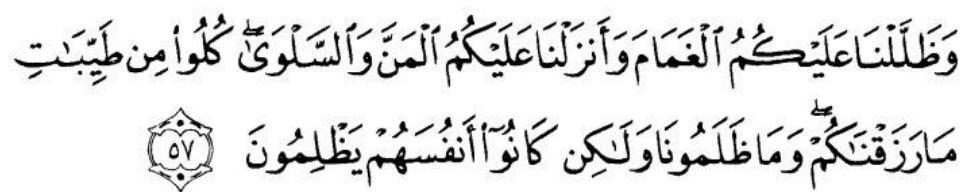 وَظَلَّلْنَا عَلَيْكُمُ ٱلْغَمَامَ وَأَنزَلْنَا عَلَيْكُمُ ٱلْمَنَّ وَٱلسَّلْوَىٰۖ كُلُوا۟ مِن طَيِّبَـٰتِ
مَا رَزَقْنَـٰكُمْۖ وَمَا ظَلَمُونَا وَلَـٰكِن كَانُوٓا۟ أَنفُسَهُمْ يَظْلِمُونَ ٥٧